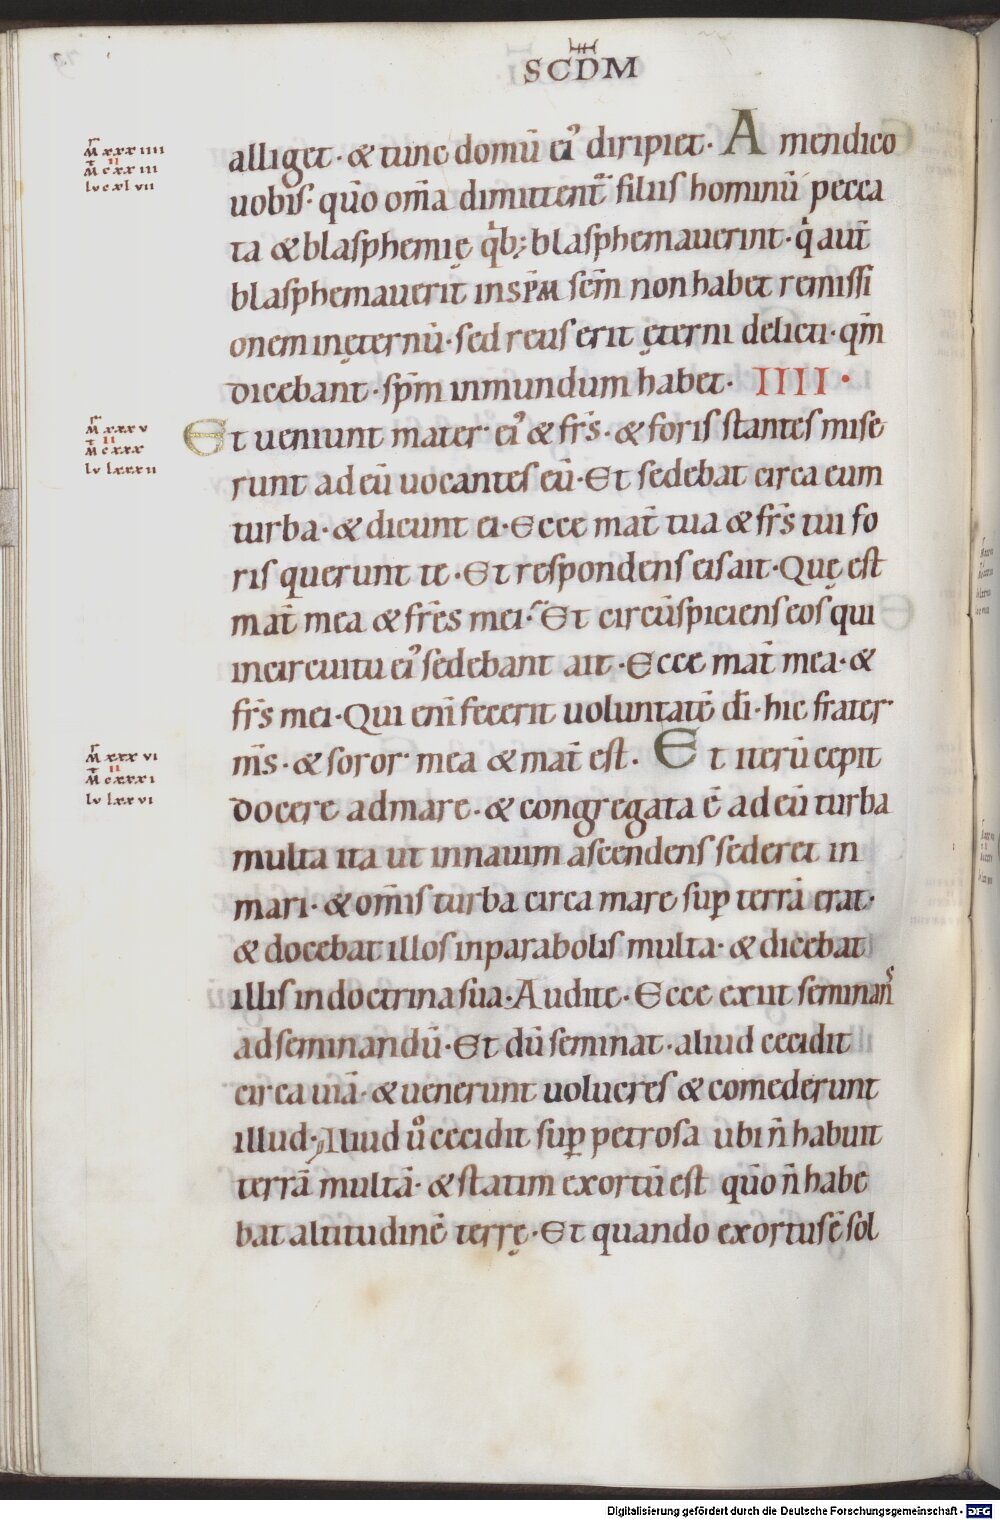 SCDM
alliget · & tunc domū ei᾿ diripiet · Amen dico
uobis · qūo om̄a dimittent᷑ filiis hominū pecca
ta & blasphemię q̇b; blasphemauerint · q̇ aut̄
blasphemauerit in SP̄M sc̄m non habet remissi
onem inęternū · sed reus erit ęterni delicti · qm̄
dicebant · sp̄m inmundum habet · IIII ·
Et ueniunt mater ei᾿ & fr̄s · & foris stantes mise
runt ad eū uocantes eū · Et sedebat circa eum
turba · & dicunt ei · Ecce mat̄ tua & fr̄s tui fo
ris querunt te · Et respondens eis ait · Quę est
mat̄ mea & fr̄es mei · Et circūspiciens eos qui
incircuitu ei᾿ sedebant ait · Ecce mat̄ mea · &
fr̄s mei · Qui eni̅ fecerit uoluntatē dī · hic frater
m̄s · & soror mea & mat̄ est · Et iterū cepit
docere admare · & congregata ē ad eū turba
multa ita ut innauim ascendens sederet in
mari · & om̄is turba circa mare sup̱ terrā erat ·
& docebat illos inparabolis multa · & dicebat
illis indoctrina sua · Audite · Ecce exiit seminans
ad seminandū · Et dū seminat · aliud cecidit
circa uiā · & uenerunt uolucres & comederunt
illud · Aliud u̇ cecidit sup̱ petrosa ubi n̄ habuit
terrā multā · & statim exortū est qūo n̄ habe
bat altitudinē terrę · Et quando exortus ē sol
M xxx IIII
M c xx III
lv c xl vII
M xxx v
M c xxx
lv lxxx II
M xxx vI
M c xxx I
lv lxx vI
Digitalisierung gefördert durch die Deutsche Forschungsgemeinschaft - DFG